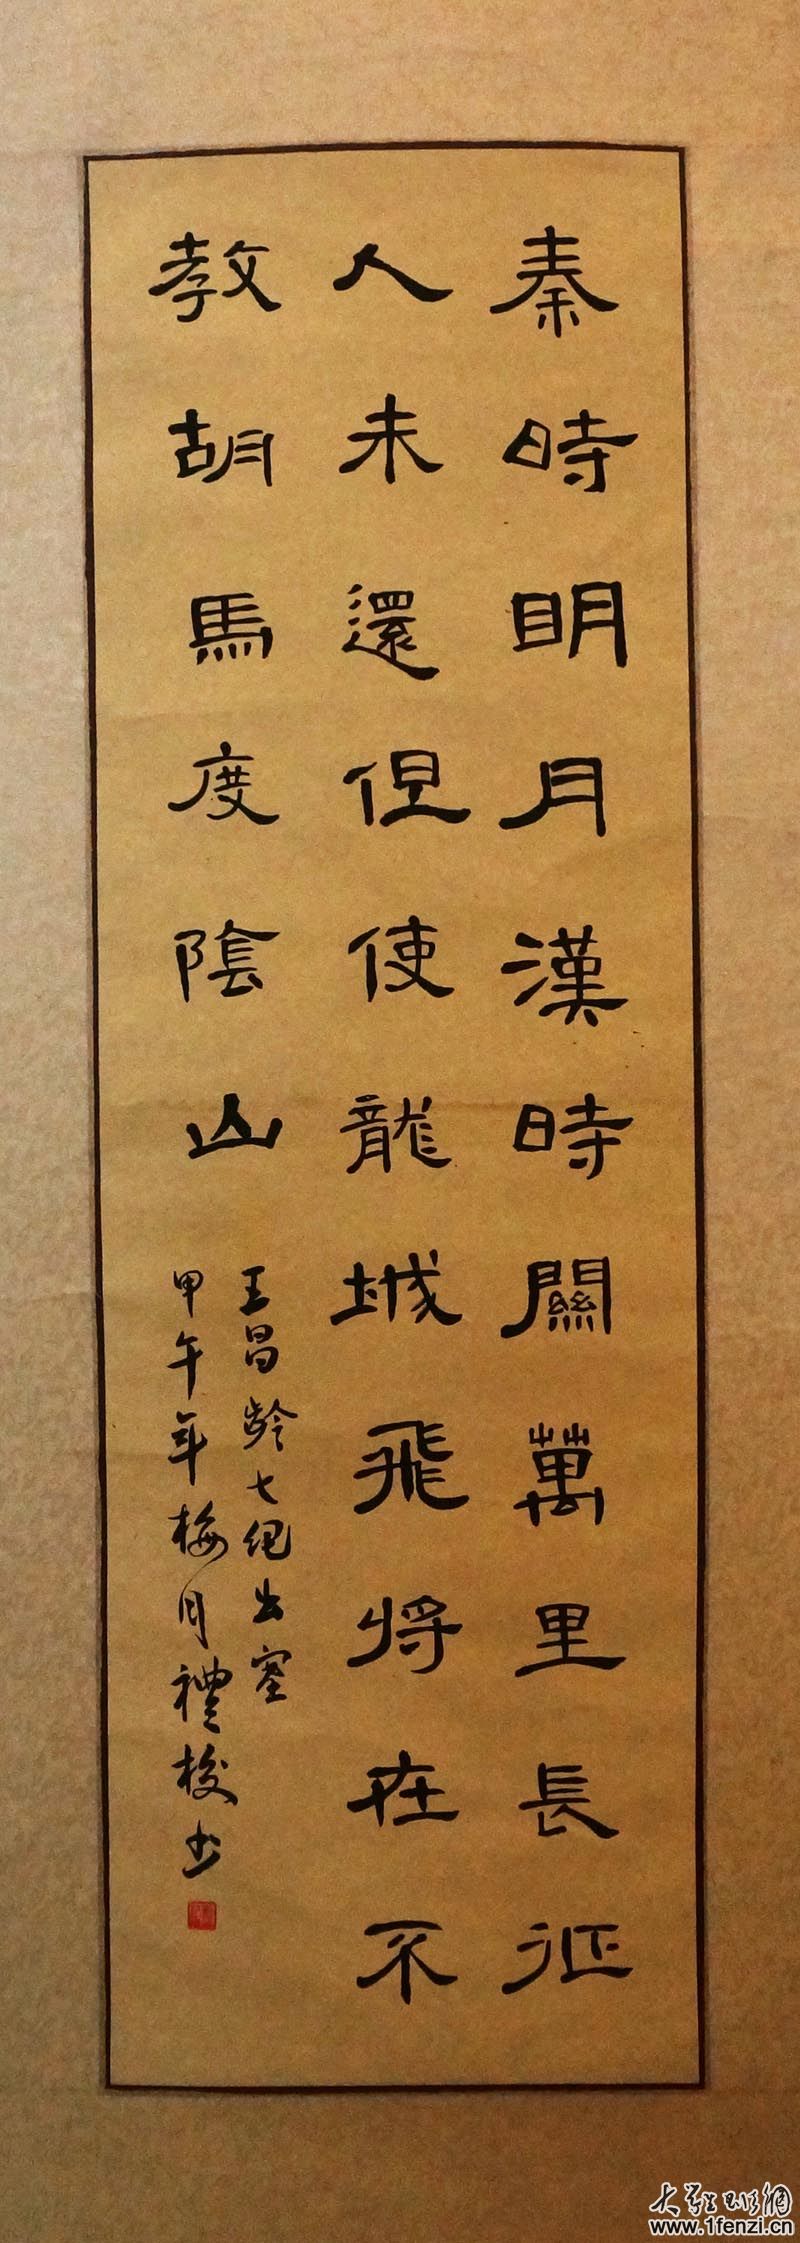 秦時明月漢時關萬里長征
人未還但使龍城飛將在不
教胡馬度陰山
王昌齡七絕出塞
甲午年梅月禮梭书
大学生班網
www.1fenzi.cn